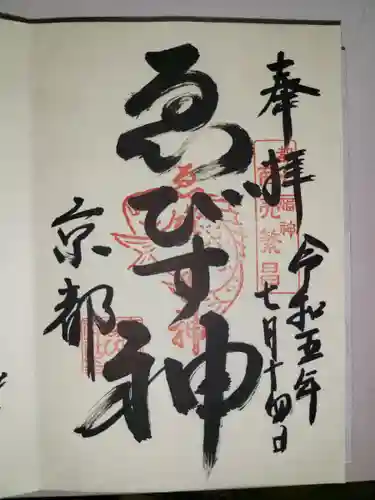 奉拝
令和五年
七月十四日
商売繁昌
ゑびす神
京都